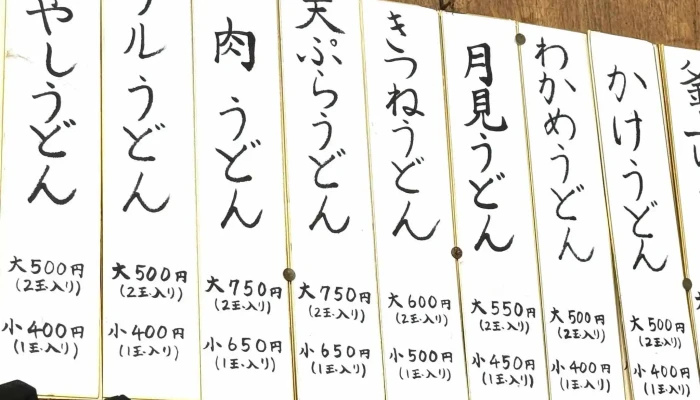 釜
かけうどん
大500円
(2玉入り)
小400円
(1玉入り)
わかめうどん
大500円
(2玉入り)
小400円
(1玉入り)
月見うどん
大550円
(2玉入り)
小450円
(1玉入り)
きつねうどん
大600円
(2玉入り)
小500円
(1玉入り)
天ぷらうどん
大750円
(2玉入り)
小650円
(1玉入り)
肉うどん
大750円
(2玉入り)
小650円
(1玉入り)
ルうどん
大500円
(2玉入り)
小400円
(1玉入り)
やしうどん
大500円
(2玉入り)
小400円
(1玉入り)